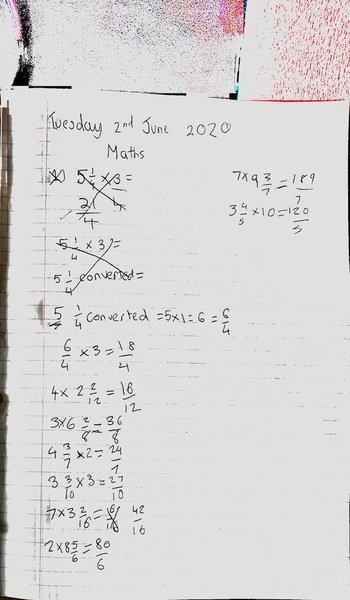 Tuesday 2nd June 2020
Maths
5 1/4 × 3 =
21/4
5 1/4 × 3 =
5 1/4 converted =
5 1/4 converted = 5×1 = 6 = 6/4
6/4 × 3 = 18/4
4 × 2 2/12 = 16/12
3×6 2/8 = 36/8
4 3/7 × 2 = 24/7
3 3/10 × 3 = 27/10
7 × 3 2/16 = 42/16
2 × 8 5/6 = 80/6
7×9 3/7 = 189/7
3 4/5 × 10 = 120/5